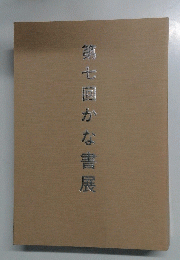 第七回かな書展